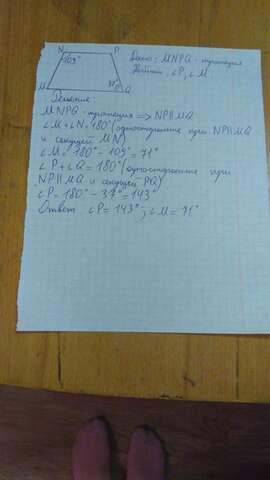 N P
109°
37°
M Q
Дано: MNPQ - трапеция
Найти: ∠P, ∠M
Решение
MNPQ - трапеция ⟹ NP∥MQ
∠M + ∠N = 180° (односторонние при NP∥MQ
и секущей MN)
∠M = 180° - 109° = 71°
∠P + ∠Q = 180° (односторонние при
NP∥MQ и секущей PQ)
∠P = 180° - 37° = 143°
Ответ ∠P = 143°; ∠M = 71°